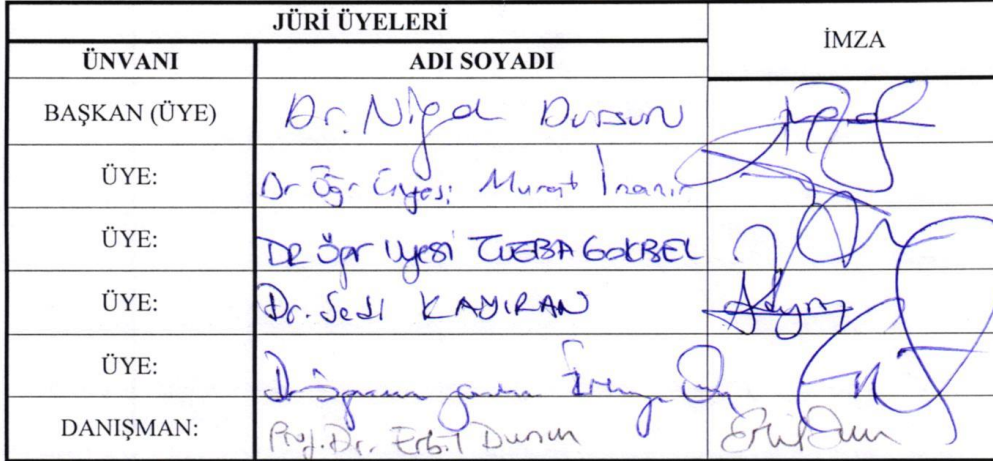 JÜRİ ÜYELERİ
İMZA
ÜNVANI ADI SOYADI
BAŞKAN (ÜYE) Dr. Nigel Dursun
ÜYE: Dr Öğr Üyesi Murat İnanır
ÜYE: DR Öğr Üyesi TUĞBA GÖKBEL
ÜYE: Dr. Sedi KAYIRAN
ÜYE: Dr Öğretim
DANIŞMAN: Prof. Dr. Erbil Dursun